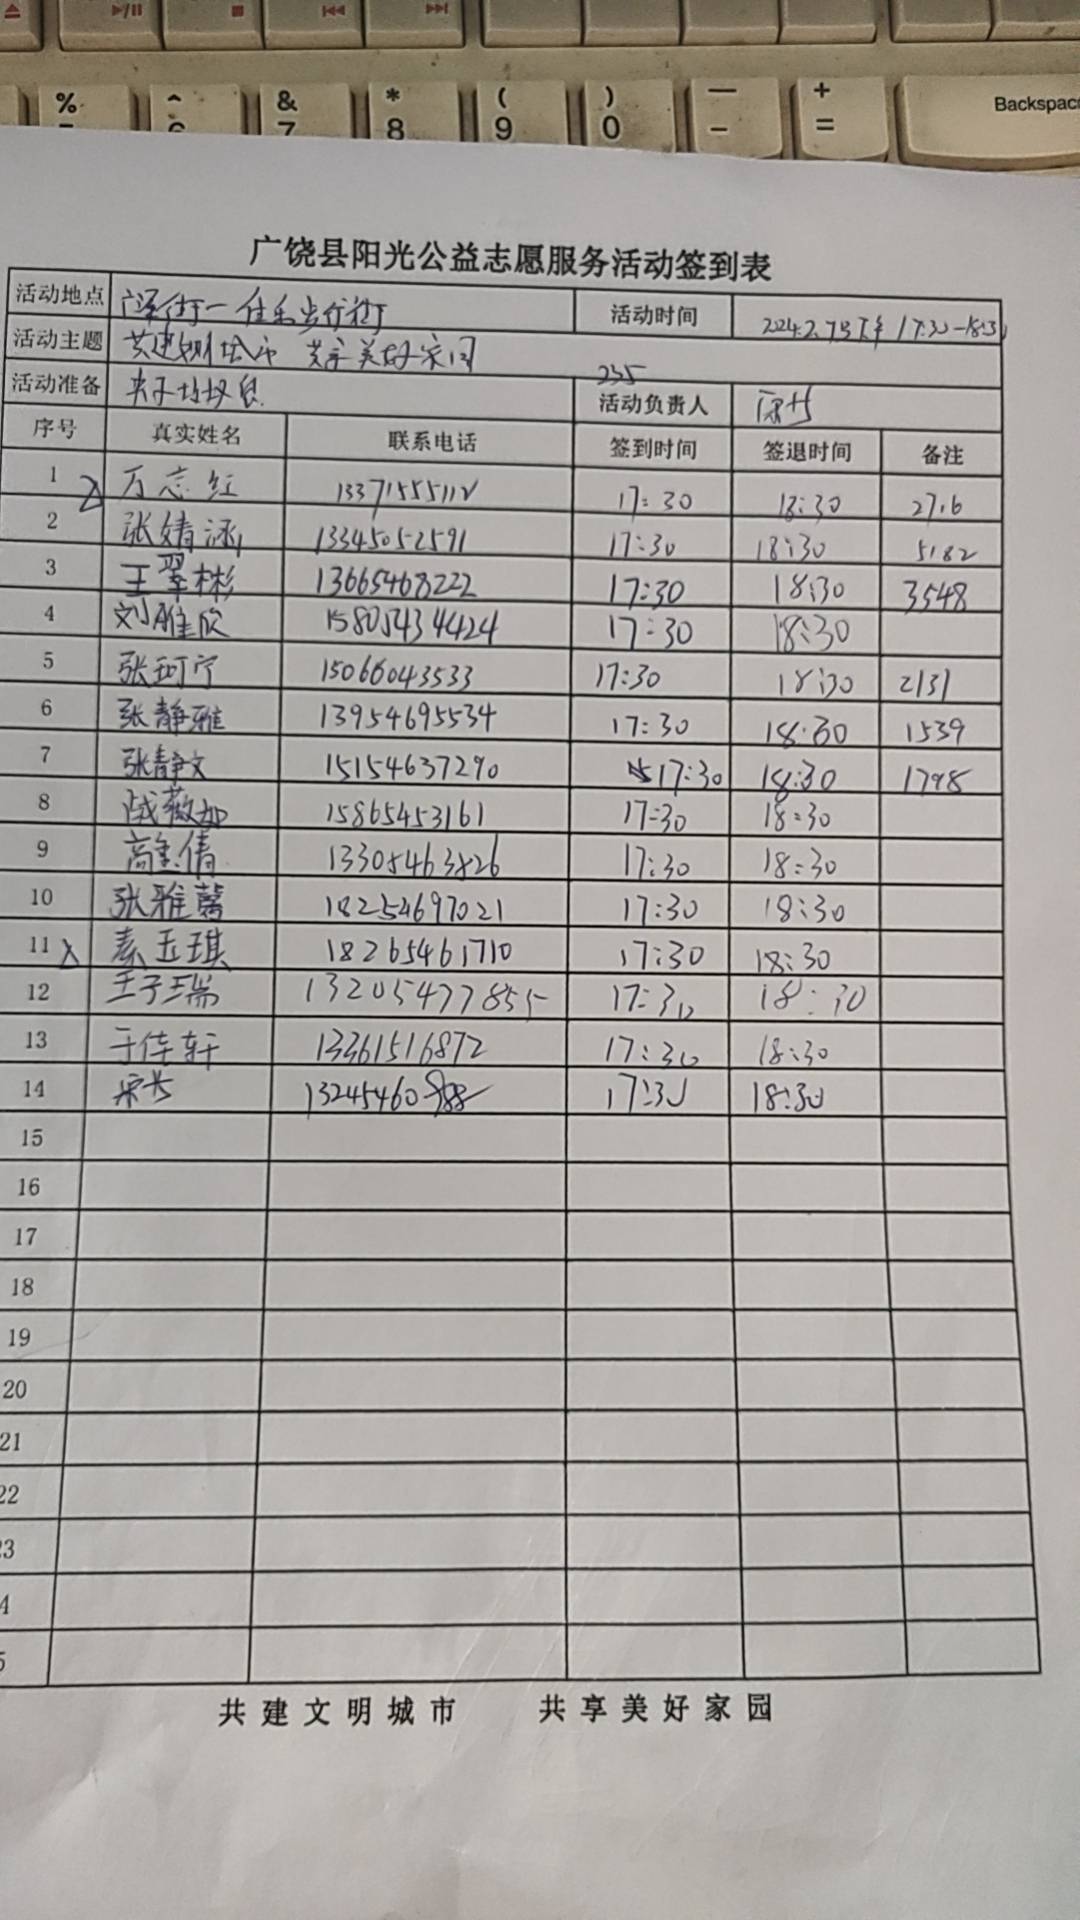 % ^ & * ( ) — +
6 7 8 9 0 - = Backspac
广饶县阳光公益志愿服务活动签到表
活动地点 活动时间 2024.2.7 17:30-18:30
活动主题 共建 城市 共享美好家园
235
活动准备 夹子垃圾袋 活动负责人
序号 真实姓名 联系电话 签到时间 签退时间 备注
1 万志红 13371555112 17:30 18:30 27.6
2 张婧涵 13345052591 17:30 18:30 5182
3 王翠彬 13665468222 17:30 18:30 3548
4 刘雅欣 15805434424 17:30 18:30
5 张珂宁 15066043533 17:30 18:30 2131
6 张静雅 13954695534 17:30 18:30 1539
7 张静文 15154637290 17:30 18:30 1798
8 15865453161 17:30 18:30
9 高 倩 13305463826 17:30 18:30
10 张雅馨 18254697021 17:30 18:30
11 秦玉琪 18265461710 17:30 18:30
12 王子瑞 13205477855 17:30 18:30
13 于佳轩 13361516872 17:30 18:30
14 17:30 18:30
15
16
17
18
19
20
21
22
23
4
5
共建文明城市 共享美好家园